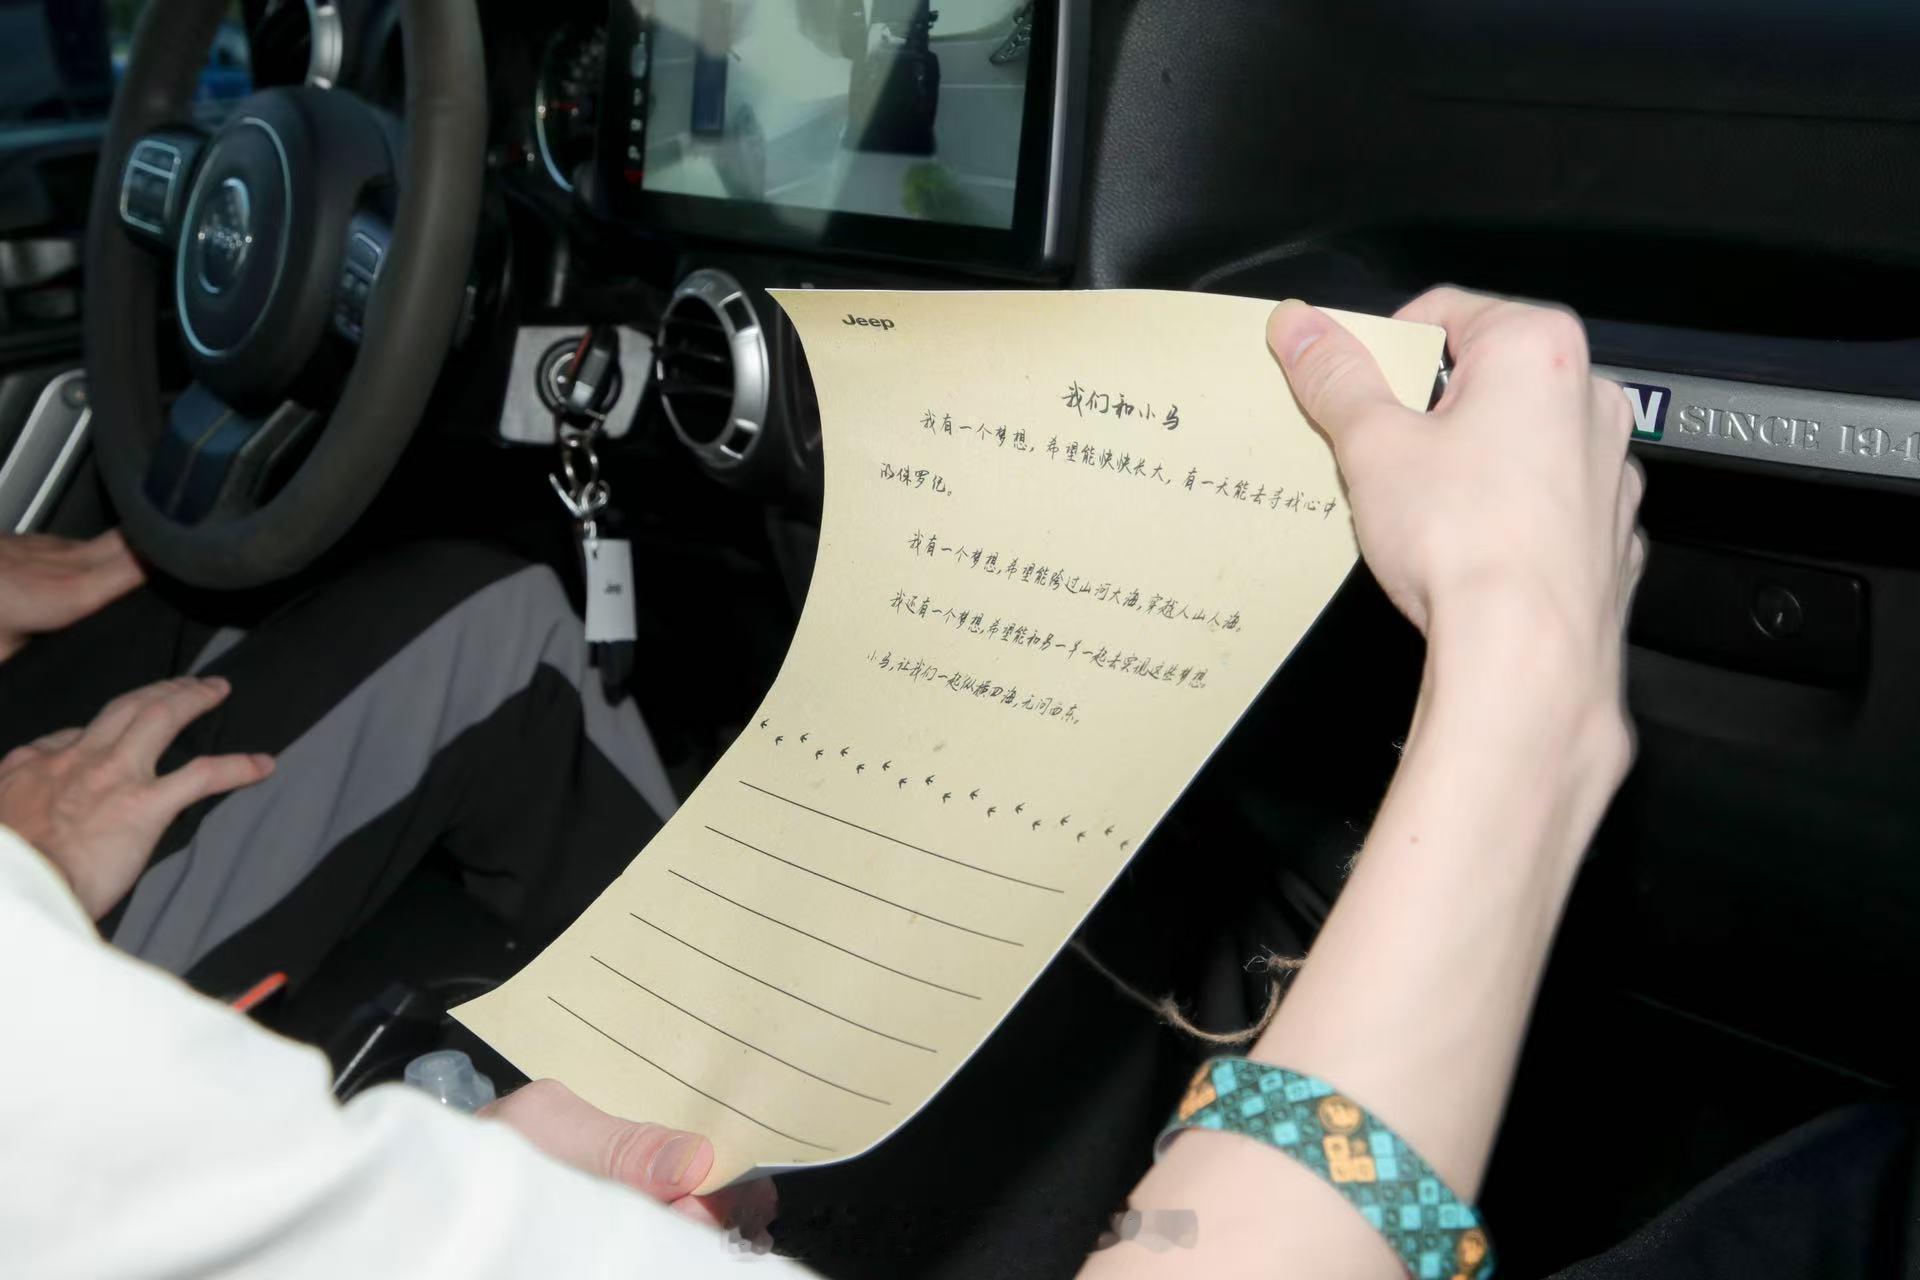 Jeep
我们和小马
我有一个梦想，希望能快快长大，有一天能去寻找心中
的侏罗纪。
我有一个梦想，希望能跨过山河大海，穿越人山人海。
我还有一个梦想，希望能和另一半一起去实现这些梦想。
小马，让我们一起纵横四海，无问西东。
Jeep
N SINCE 194